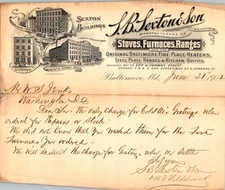 SEXTON
BUILDINGS
S.B. Sexton & Son
MANUFACTURERS OF
Stoves, Furnaces, Ranges
ORIGINAL BALTIMORE FIRE PLACE HEATERS
STEEL PLATE RANGES & KITCHEN OUTFITS
Baltimore, Md. June 21 1912
Mr W. S. Jenks
Washington D.C.
Dear Sir: We only charge for Cold Air Gratings when
ordered for Repairs or Stock
We did not know that you wanted them for the
Furnaces you ordered
We will deduct the charge for Grating when we settle
S B Sexton & Son